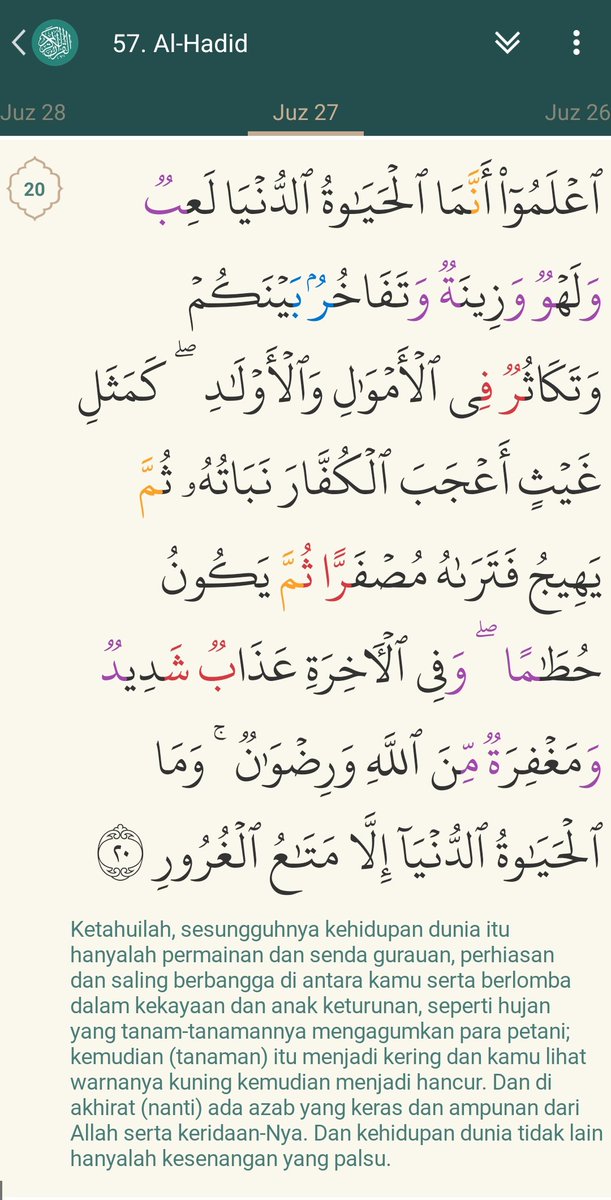 57. Al-Hadid
Juz 28 Juz 27 Juz 26
20
ٱعْلَمُوٓا۟ أَنَّمَا ٱلْحَيَوٰةُ ٱلدُّنْيَا لَعِبٌ
وَلَهْوٌ وَزِينَةٌ وَتَفَاخُرٌۢ بَيْنَكُمْ
وَتَكَاثُرٌ فِى ٱلْأَمْوَٰلِ وَٱلْأَوْلَـٰدِ ۖ كَمَثَلِ
غَيْثٍ أَعْجَبَ ٱلْكُفَّارَ نَبَاتُهُۥ ثُمَّ
يَهِيجُ فَتَرَىٰهُ مُصْفَرًّا ثُمَّ يَكُونُ
حُطَـٰمًا ۖ وَفِى ٱلْـَٔاخِرَةِ عَذَابٌ شَدِيدٌ
وَمَغْفِرَةٌ مِّنَ ٱللَّهِ وَرِضْوَٰنٌ ۚ وَمَا
ٱلْحَيَوٰةُ ٱلدُّنْيَآ إِلَّا مَتَـٰعُ ٱلْغُرُورِ ٢٠
Ketahuilah, sesungguhnya kehidupan dunia itu
hanyalah permainan dan senda gurauan, perhiasan
dan saling berbangga di antara kamu serta berlomba
dalam kekayaan dan anak keturunan, seperti hujan
yang tanam-tanamannya mengagumkan para petani;
kemudian (tanaman) itu menjadi kering dan kamu lihat
warnanya kuning kemudian menjadi hancur. Dan di
akhirat (nanti) ada azab yang keras dan ampunan dari
Allah serta keridaan-Nya. Dan kehidupan dunia tidak lain
hanyalah kesenangan yang palsu.